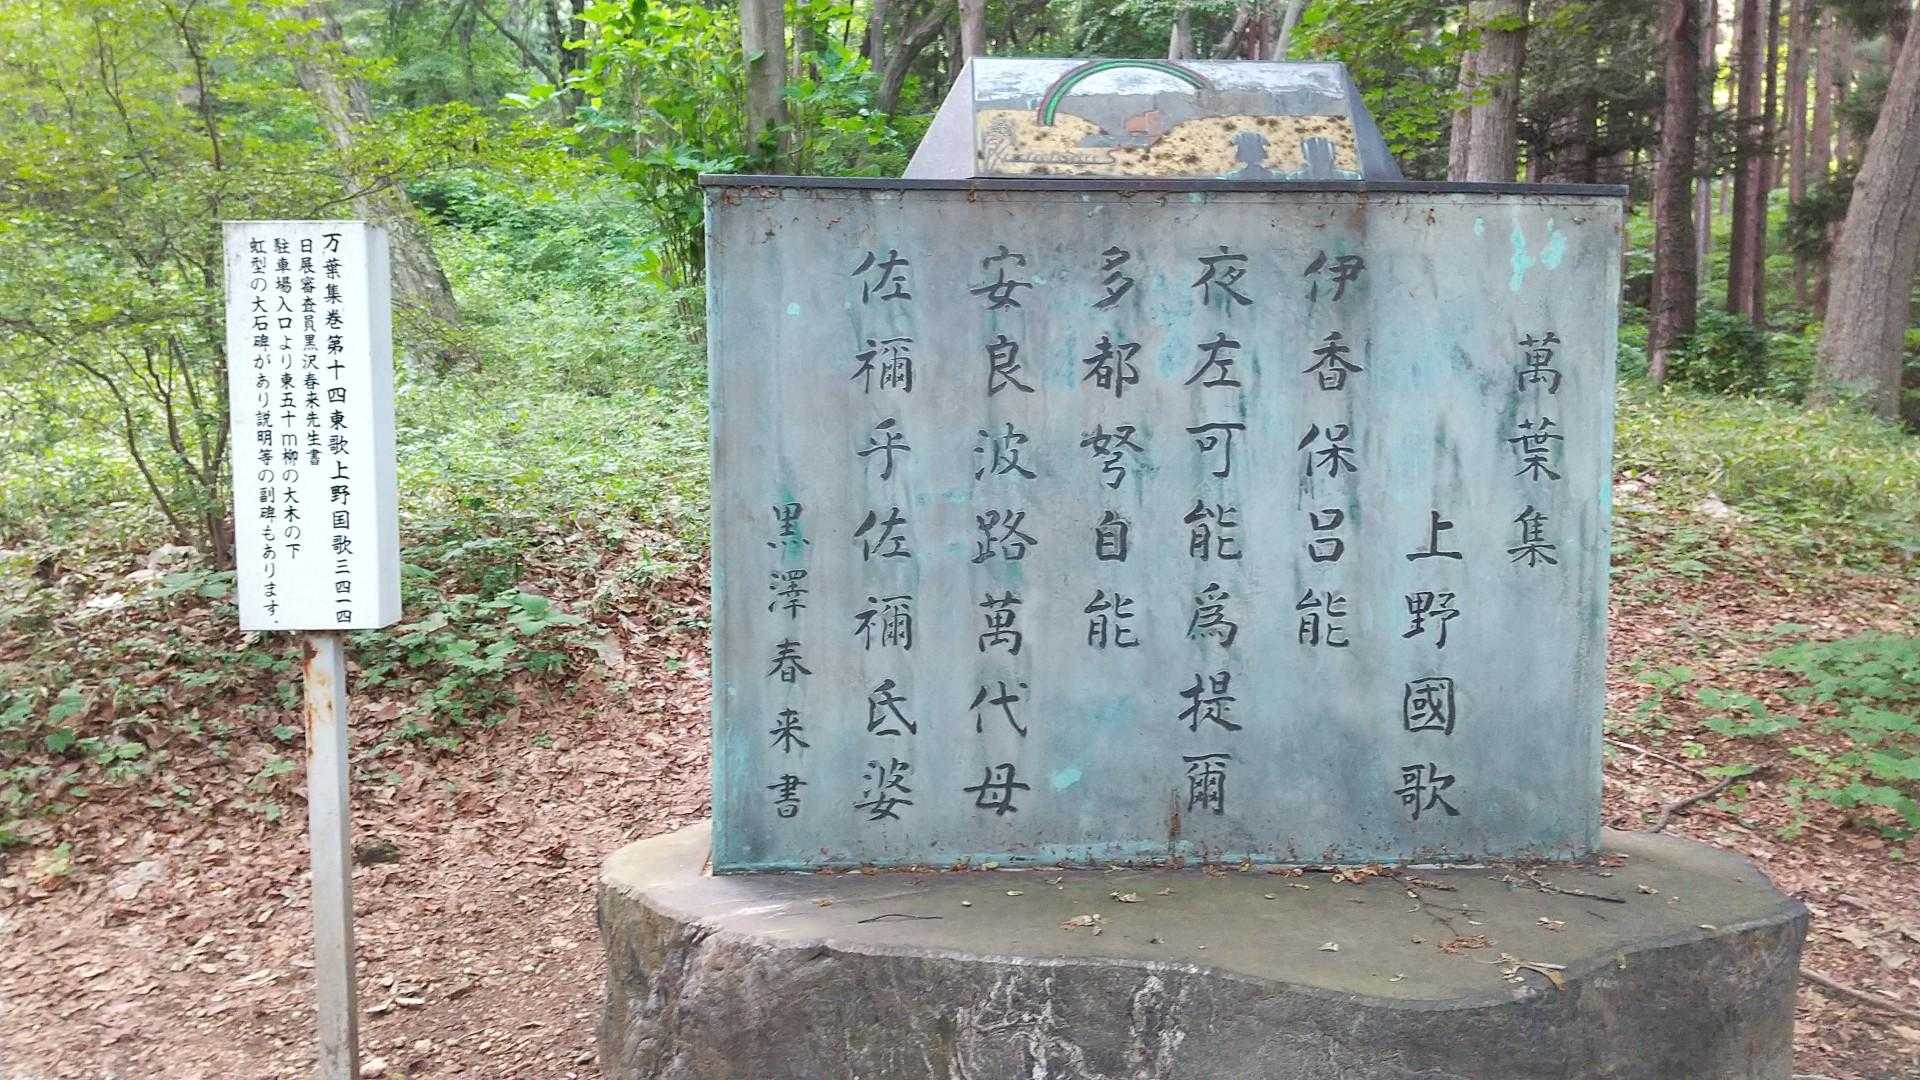 萬葉集
上野國歌
伊香保呂能
夜左可能爲提爾
多都弩自能
安良波路萬代母
佐禰乎佐禰氐婆
黒澤春来書
万葉集巻第十四東歌上野国歌三四一四
日展審査員黒沢春来先生書
駐車場入口より東五十m柳の大木の下
虹型の大石碑があり説明等の副碑もあります.